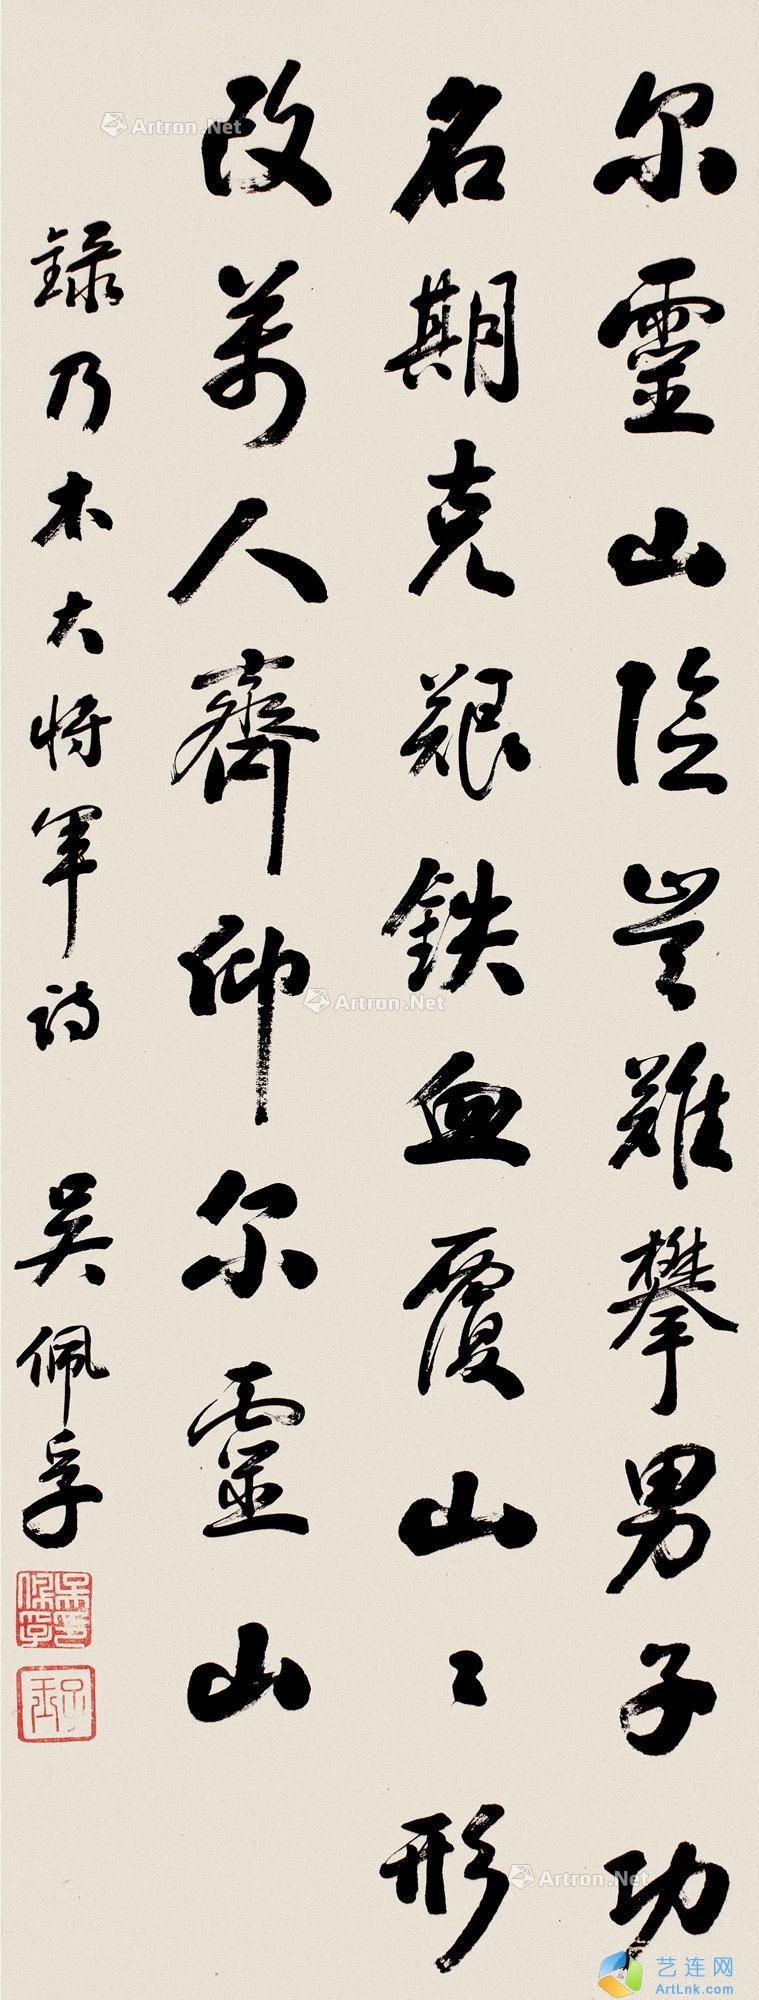 尔靈山险岂難攀男子功
名期克艱鉄血覆山〻形
改萬人齊仰尔靈山
録乃木大将军诗 吴佩孚
吳佩孚印
子玉
Artron.Net
Artron.Net
Artron.Net
艺连网
ArtLnk.com